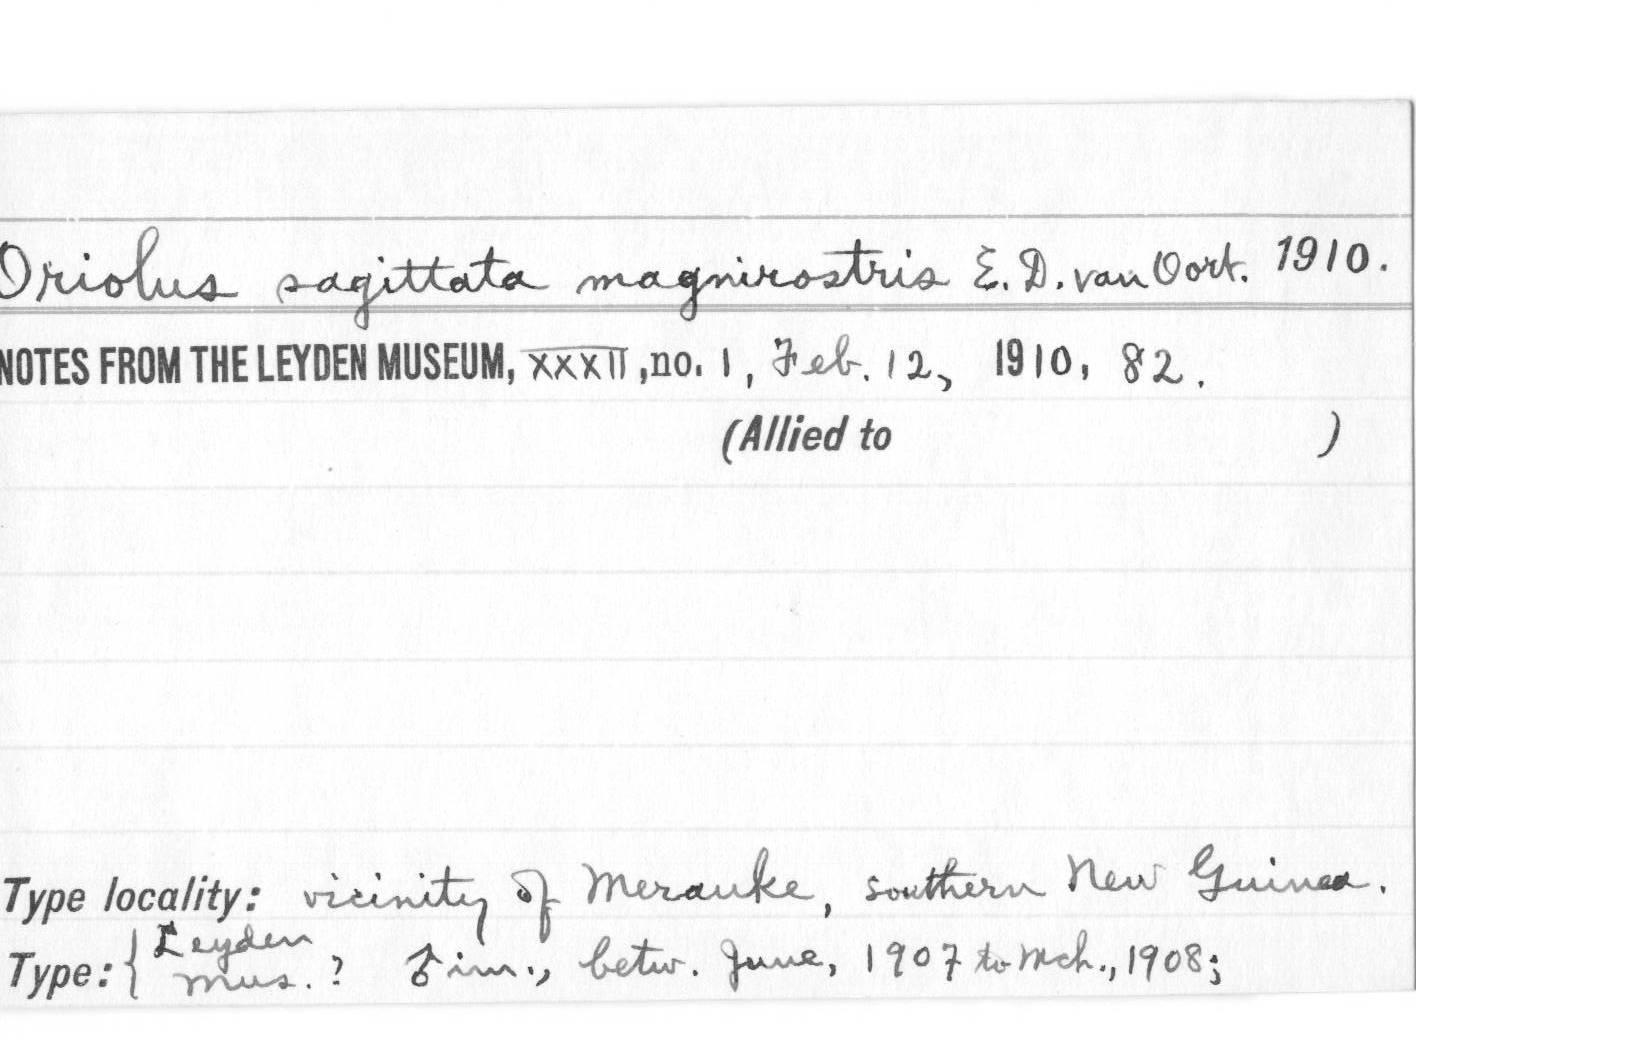 Oriolus sagittata magnirostris E. D. van Oort. 1910.
NOTES FROM THE LEYDEN MUSEUM, XXXII, no. 1, Feb. 12, 1910, 82.
(Allied to )
Type locality: vicinity of Merauke, southern New Guinea.
Type: { Leyden
mus. ? ♂ im., betw. June, 1907 to Mch., 1908;